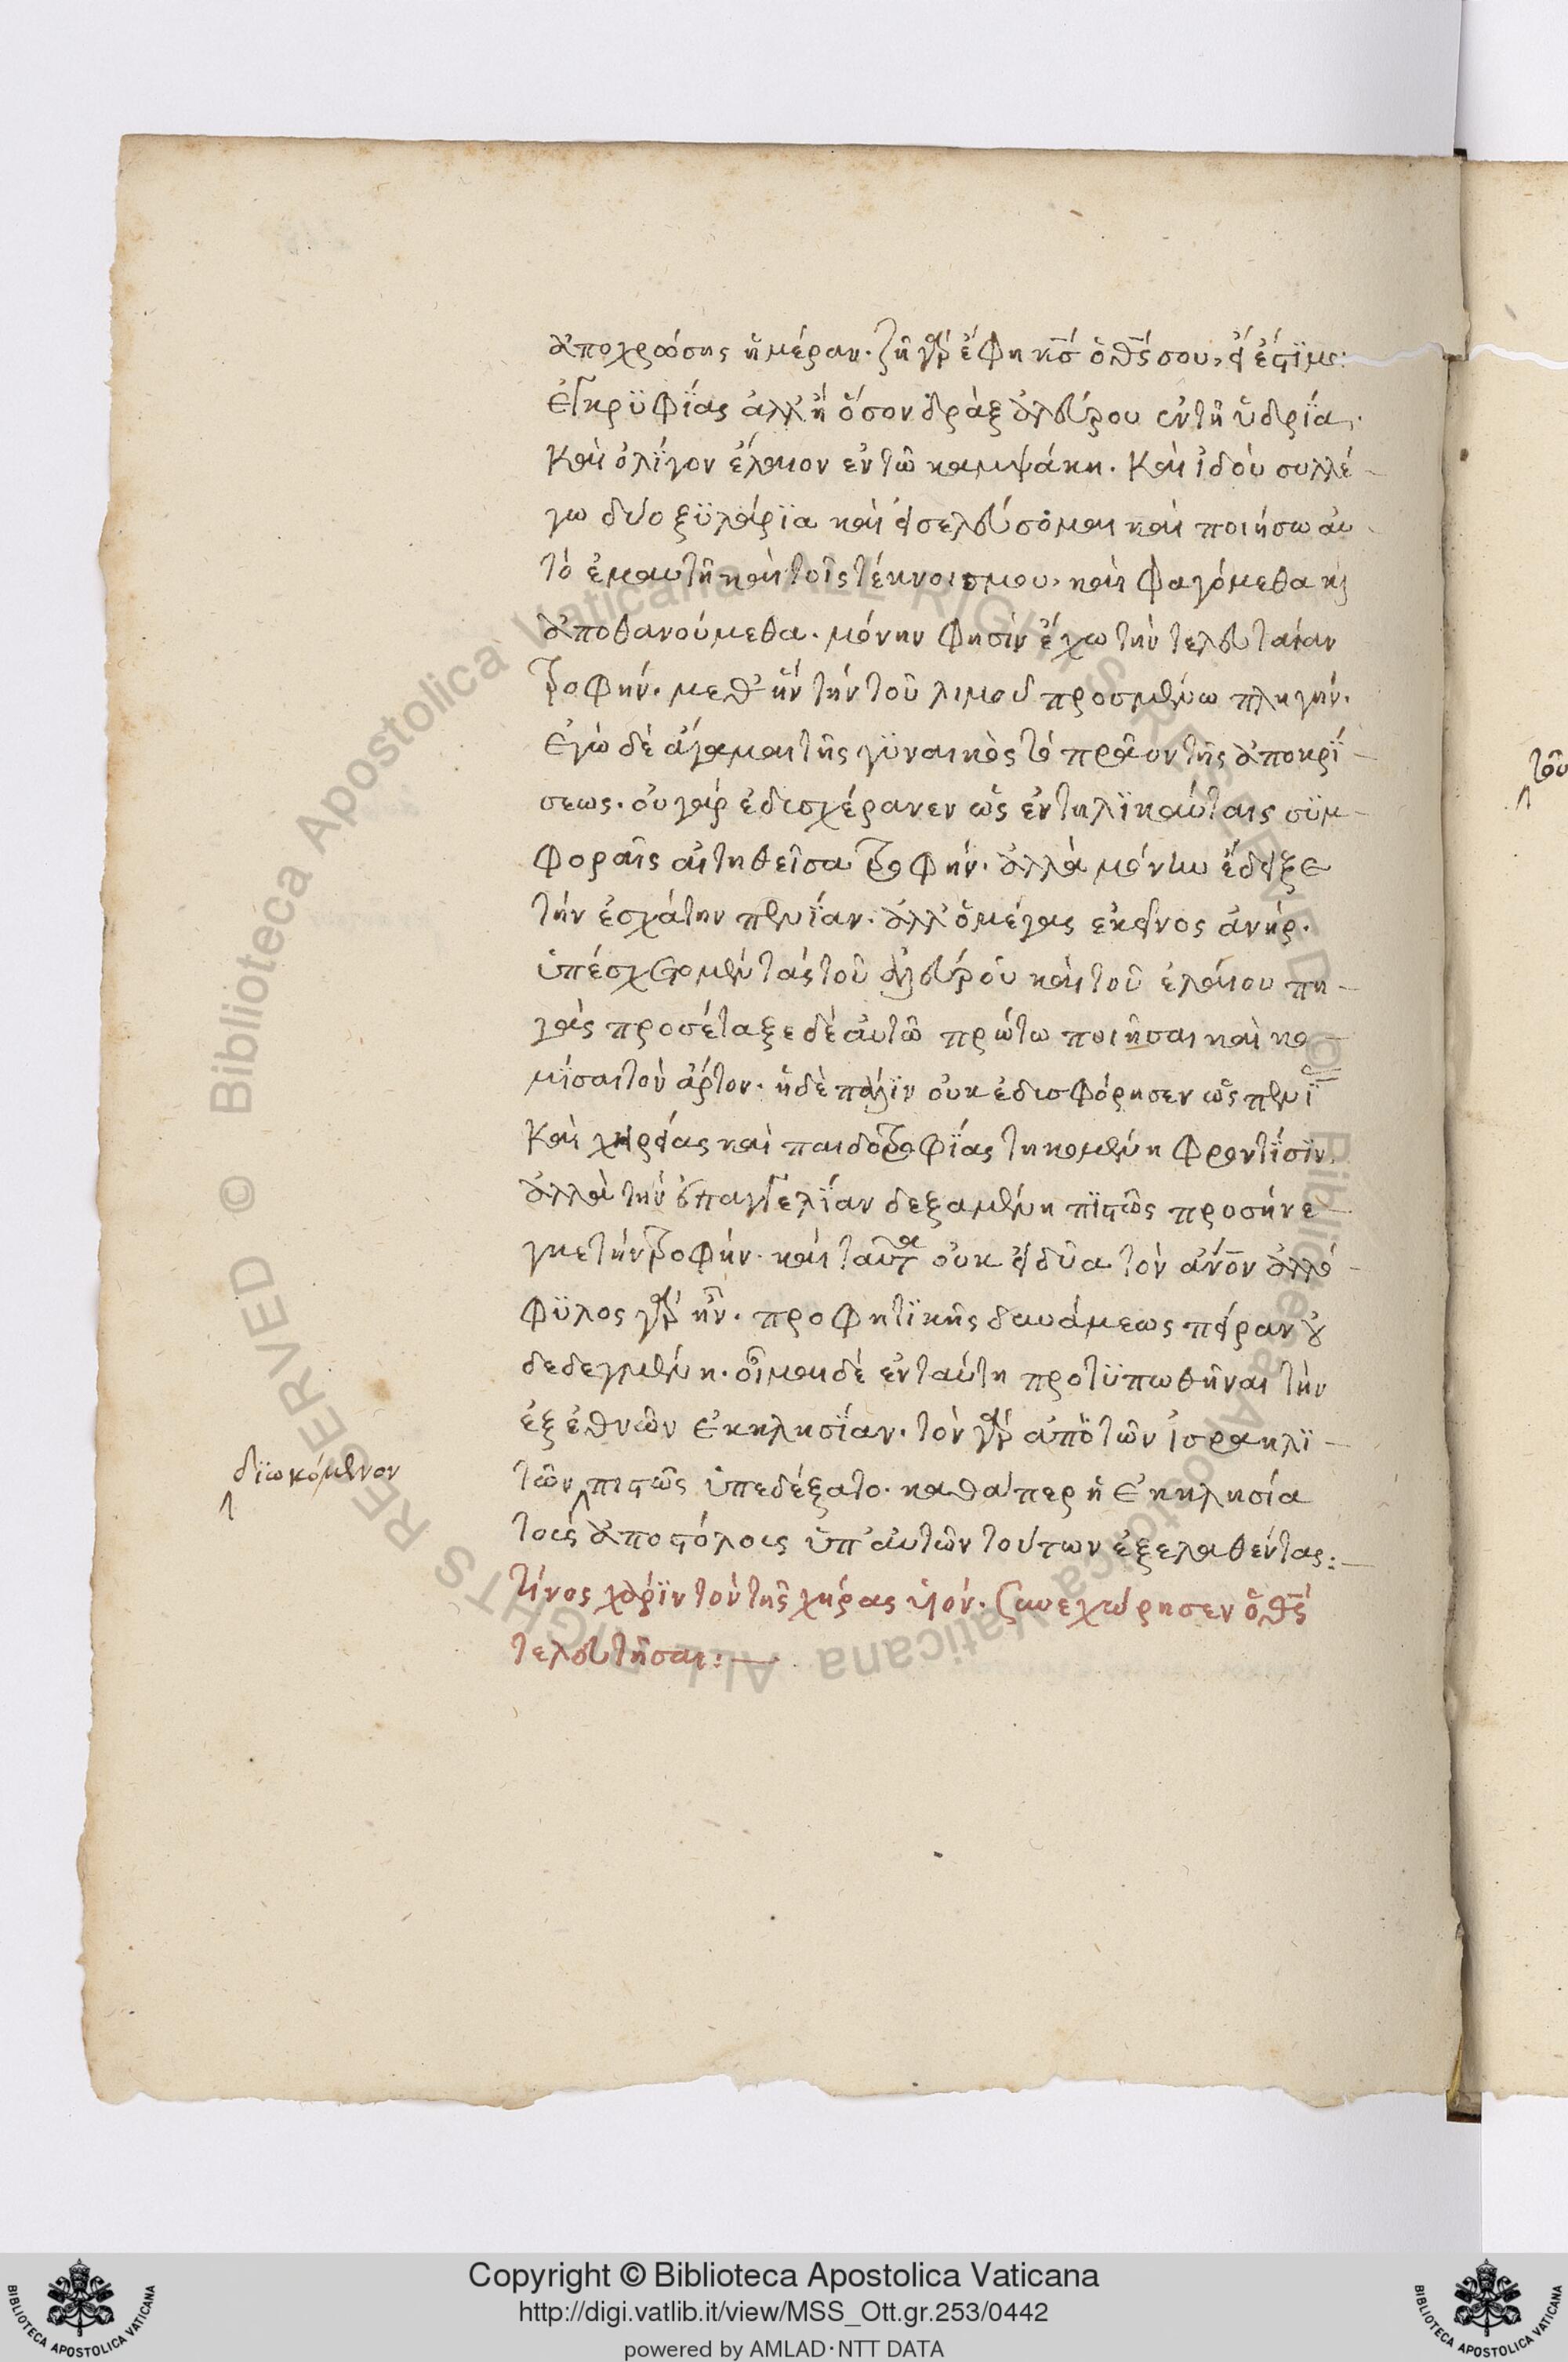 ἀποχρώσης ἡμέραν. ζῆ γὰρ ἔφη κ̅ς ὁ θ̅ς σου, εἰ ἔστί μοι
ἐγκρϋφΐας ἀλλ' ἢ ὅσον δρὰξ ἀλεύρου ἐν τῆ ὑδρΐα.
Καὶ ὀλΐγον ἔλαιον ἐν τῶ καμψάκη. Καὶ ἰδοὺ συλλέ-
γω δύο ξϋλάρϊα καὶ εἰσελεύσομαι καὶ ποιήσω αὐ-
τὸ ἐμαυτῆ καὶ τοῖς τέκνοις μου, καὶ φαγόμεθα κ̀
ἀποθανούμεθα. μόνην φησὶν ἔχω τὴν τελευταίαν
τροφήν. μεθ' ἣν τὴν τοῦ λιμοῦ προσμένω πληγήν.
Ἐγὼ δὲ ἄγαμαι τῆς γϋναικὸς τὸ πρᾶον τῆς ἀποκρΐ-
σεως. οὐ γὰρ ἐδυσχέρανεν ὡς ἐν τηλϊκαύταις σϋμ-
φοραῖς αἰτηθεῖσα τροφήν. ἀλλὰ μόνην ἔδειξε
τὴν ἐσχάτην πενΐαν. ἀλλ' ὁ μέγας ἐκεῖνος ἀνήρ.
ὑπέσχετο μὲν τὰς τοῦ ἀλεύρου καὶ τοῦ ἐλαίου πη-
γὰς προσέταξε δὲ αὐτῶ πρώτω ποιῆσαι καὶ κο-
μΐσαι τὸν ἄρτον. ἡ δὲ πάλϊν οὐκ ἐδυσφόρησεν ὡς πενΐ
Καὶ χηρείας καὶ παιδοτροφΐας τηκομένη φροντΐσϊν.
ἀλλὰ τὴν ἐπαγγελΐαν δεξαμένη πϊστῶς προσήνε-
γκε τὴν τροφήν. καὶ ταῦτα οὐκ εἰδῦα τὸν ἀν̅ο̅ν ἀλλό-
φϋλος γὰρ ἦν. προφητϊκῆς δυνάμεως πεῖραν οὐ
δεδεγμένη. οἶμαι δὲ ἐν ταύτη προτϋπωθῆναι τὴν
ἐξ ἐθνῶν ἐκκλησΐαν. τὸν γὰρ ἀπὸ τῶν ἰσραηλϊ-
διωκόμενον
τῶν πιστῶς ὑπεδέξατο. καθάπερ ἡ ἐκκλησία
τοὺς ἀποστόλους ὑπ' αὐτῶν τούτων ἐξελαθέντας:—
Τίνος χάρϊν τὸν τῆς χήρας υἱόν. συνεχώρησεν ὁ θ̅ς
τελευτῆσαι:—
τοῦ
Copyright © Biblioteca Apostolica Vaticana
http://digi.vatlib.it/view/MSS_Ott.gr.253/0442
powered by AMLAD·NTT DATA